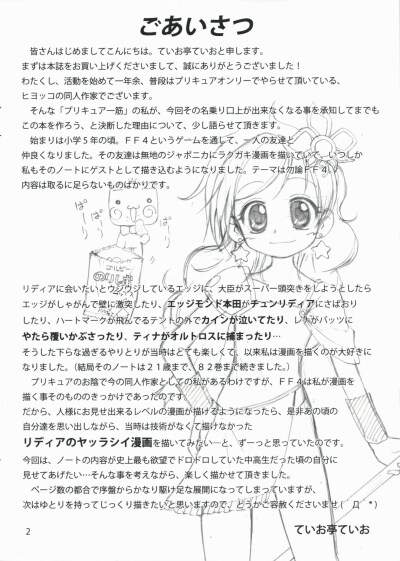 ごあいさつ
皆さんはじめましてこんにちは。ていお亭ていおと申します。
まずは本誌をお買い上げくださいまして、誠にありがとうございました!
わたくし、活動を始めて一年余、普段はプリキュアオンリーでやらせて頂いている、
ヒヨッコの同人作家でございます。
そんな「プリキュア一筋」の私が、今回その名乗り口上が出来なくなる事を承知してまでも
この本を作ろう、と決断した理由について、少し語らせて頂きます。
始まりは小学5年の頃。FF4というゲームを通して、一人の友達と
仲良くなりました。その友達は無地のジャポニカにラクガキ漫画を描いていて、いつしか
私もそのノートにゲストとして描き込むようになりました。テーマは勿論FF4。
内容は取るに足らないものばかりです。
リディアに会いたいとウジウジしているエッジに、大臣がスーパー頭突きをしようとしたら
エッジがしゃがんで壁に激突したり、エッジモンド本田がチュンリディアにさばおり
したり、ハートマークが飛んでるテントの外でカインが泣いてたり、レナがバッツに
やたら覆いかぶさったり、ティナがオルトロスに捕まったり…
そうした下らな過ぎるやりとりが当時はとても楽しくて、以来私は漫画を描くのが大好きに
なりました。(結局そのノートは21歳まで、82巻まで続きました。)
プリキュアのお陰で今の同人作家としての私があるわけですが、FF4は私が漫画を
描く事そのもののきっかけであったのです。
だから、人様にお見せ出来るレベルの漫画が描けるようになったら、是非あの頃の
自分達を思い出しながら、当時は技術がなくて描けなかった
リディアのヤッラシイ漫画を描いてみたい…と、ずーっと思っていたのです。
今回は、ノートの内容が史上最も欲望でドロドロしていた中高生だった頃の自分に
見せてあげたい…そんな事を考えながら、楽しく描かせて頂きました。
ページ数の都合で序盤からかなり駆け足な展開になってしまっていますが、
次はゆとりを持ってじっくり描きたいと思いますので、どうかご容赦くださいませ(´Д`*)
2
ていお亭ていお